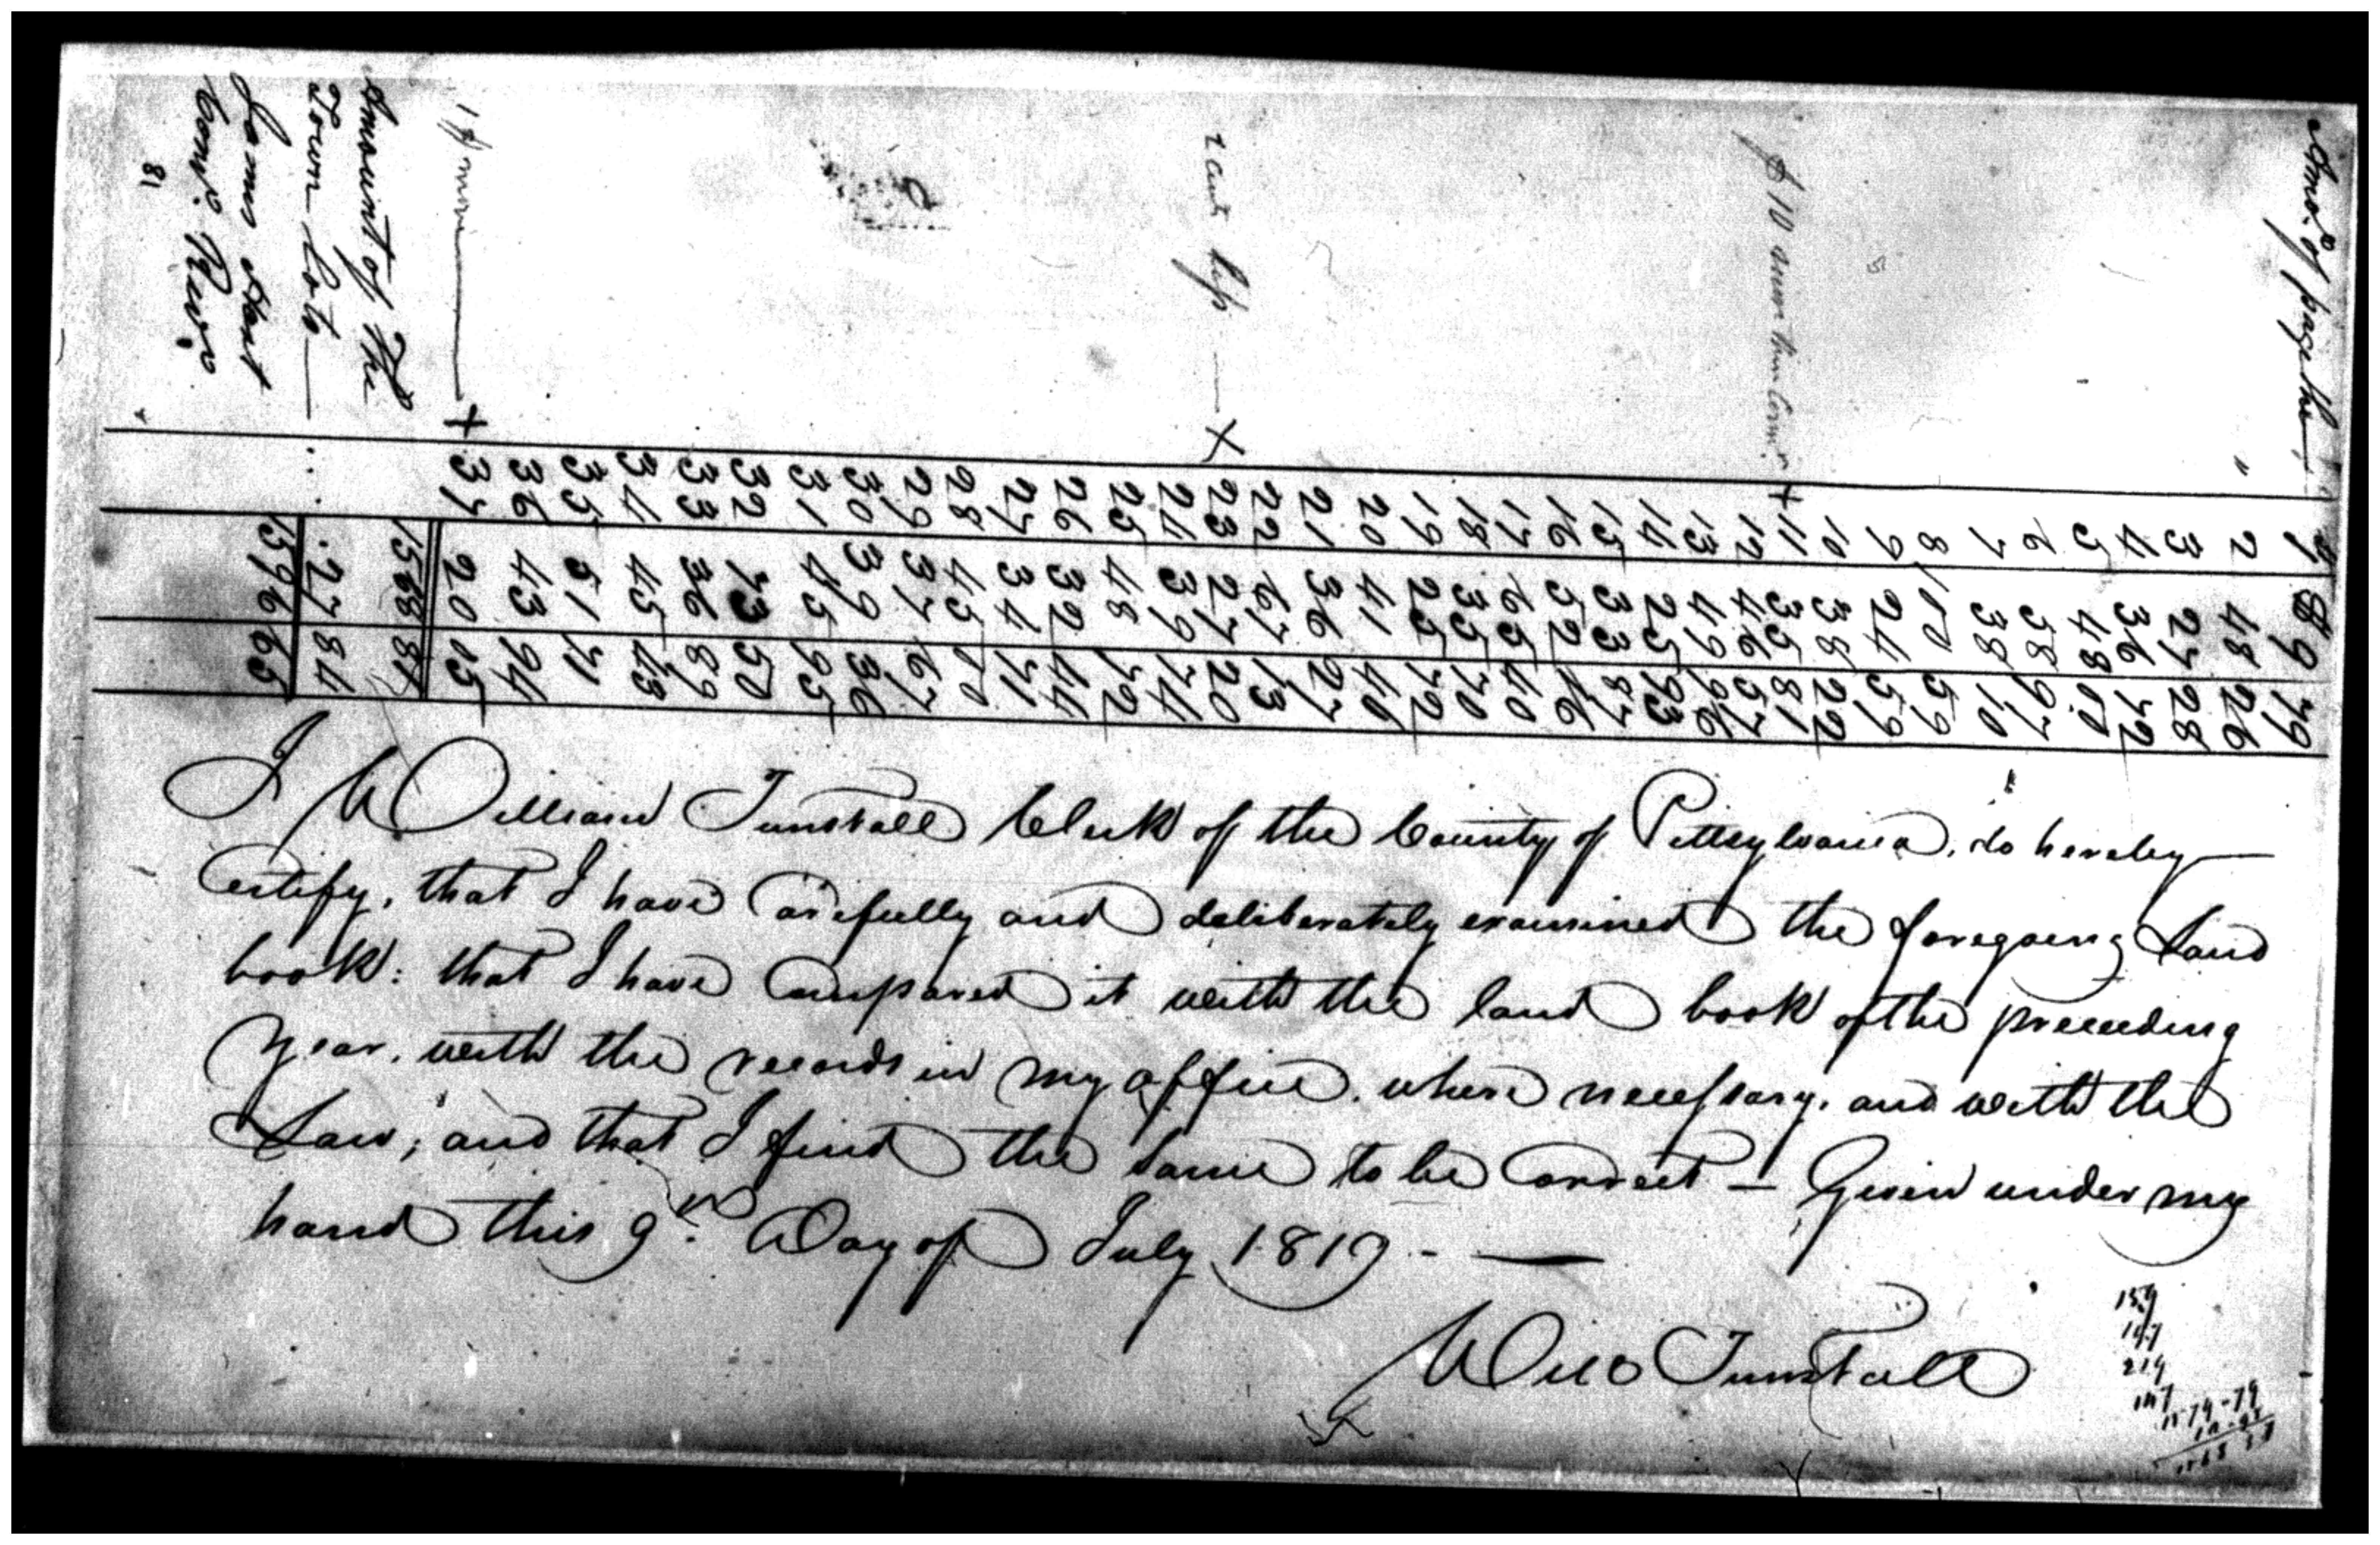 Amo.t of page the 1 $89 79
" 2 48 26
3 27 28
4 36 72
5 48 00
6 58 97
7 38 10
8 100 59
9 24 59
10 38 22
+ 11 35 81
12 46 57
13 49 96
14 25 93
15 33 87
16 52 46
17 65 40
18 35 70
19 25 72
20 41 46
21 36 27
22 67 13
2 Cents less — X 23 27 20
24 39 74
25 48 72
26 32 44
27 34 71
28 45 00
29 37 67
30 39 36
31 45 95
32 73 50
33 36 89
34 45 43
35 61 71
36 43 94
+ 37 20 05
1568 81
Amount of the
Town Lots — . . . 27 84
1596 65
James Hart
Com.r Rev.e
81
I William Tunstall Clerk of the County of Pittsylvania, do hereby —
Certify, that I have Carefully and deliberately examined the foregoing Land
book: that I have Compared it with the land book of the preceeding
Year, with the records in my office, where necessary, and with the
Law; and that I find the same to be Correct — Given under my
hand this 9th Day of July 1819 - —
Will Tunstall
159
147
219
147